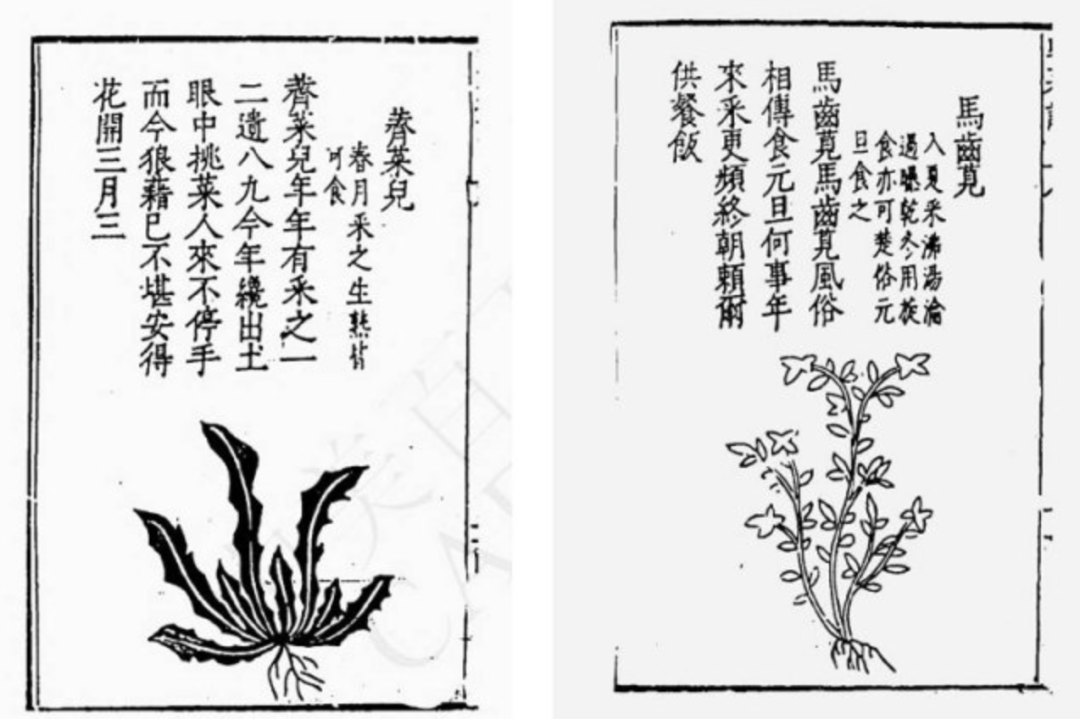 薺菜兒
春月采之生熟皆
可食
薺菜兒年年有采之一
二遺八九今年纔出土
眼中挑菜人來不停手
而今狼藉巳不堪安得
花開三月三
馬齒莧
入夏采沸湯瀹
過曬乾冬用旋
食亦可楚俗元
旦食之
馬齒莧馬齒莧風俗
相傳食元旦何事年
來采更頻終朝賴爾
供餐飯